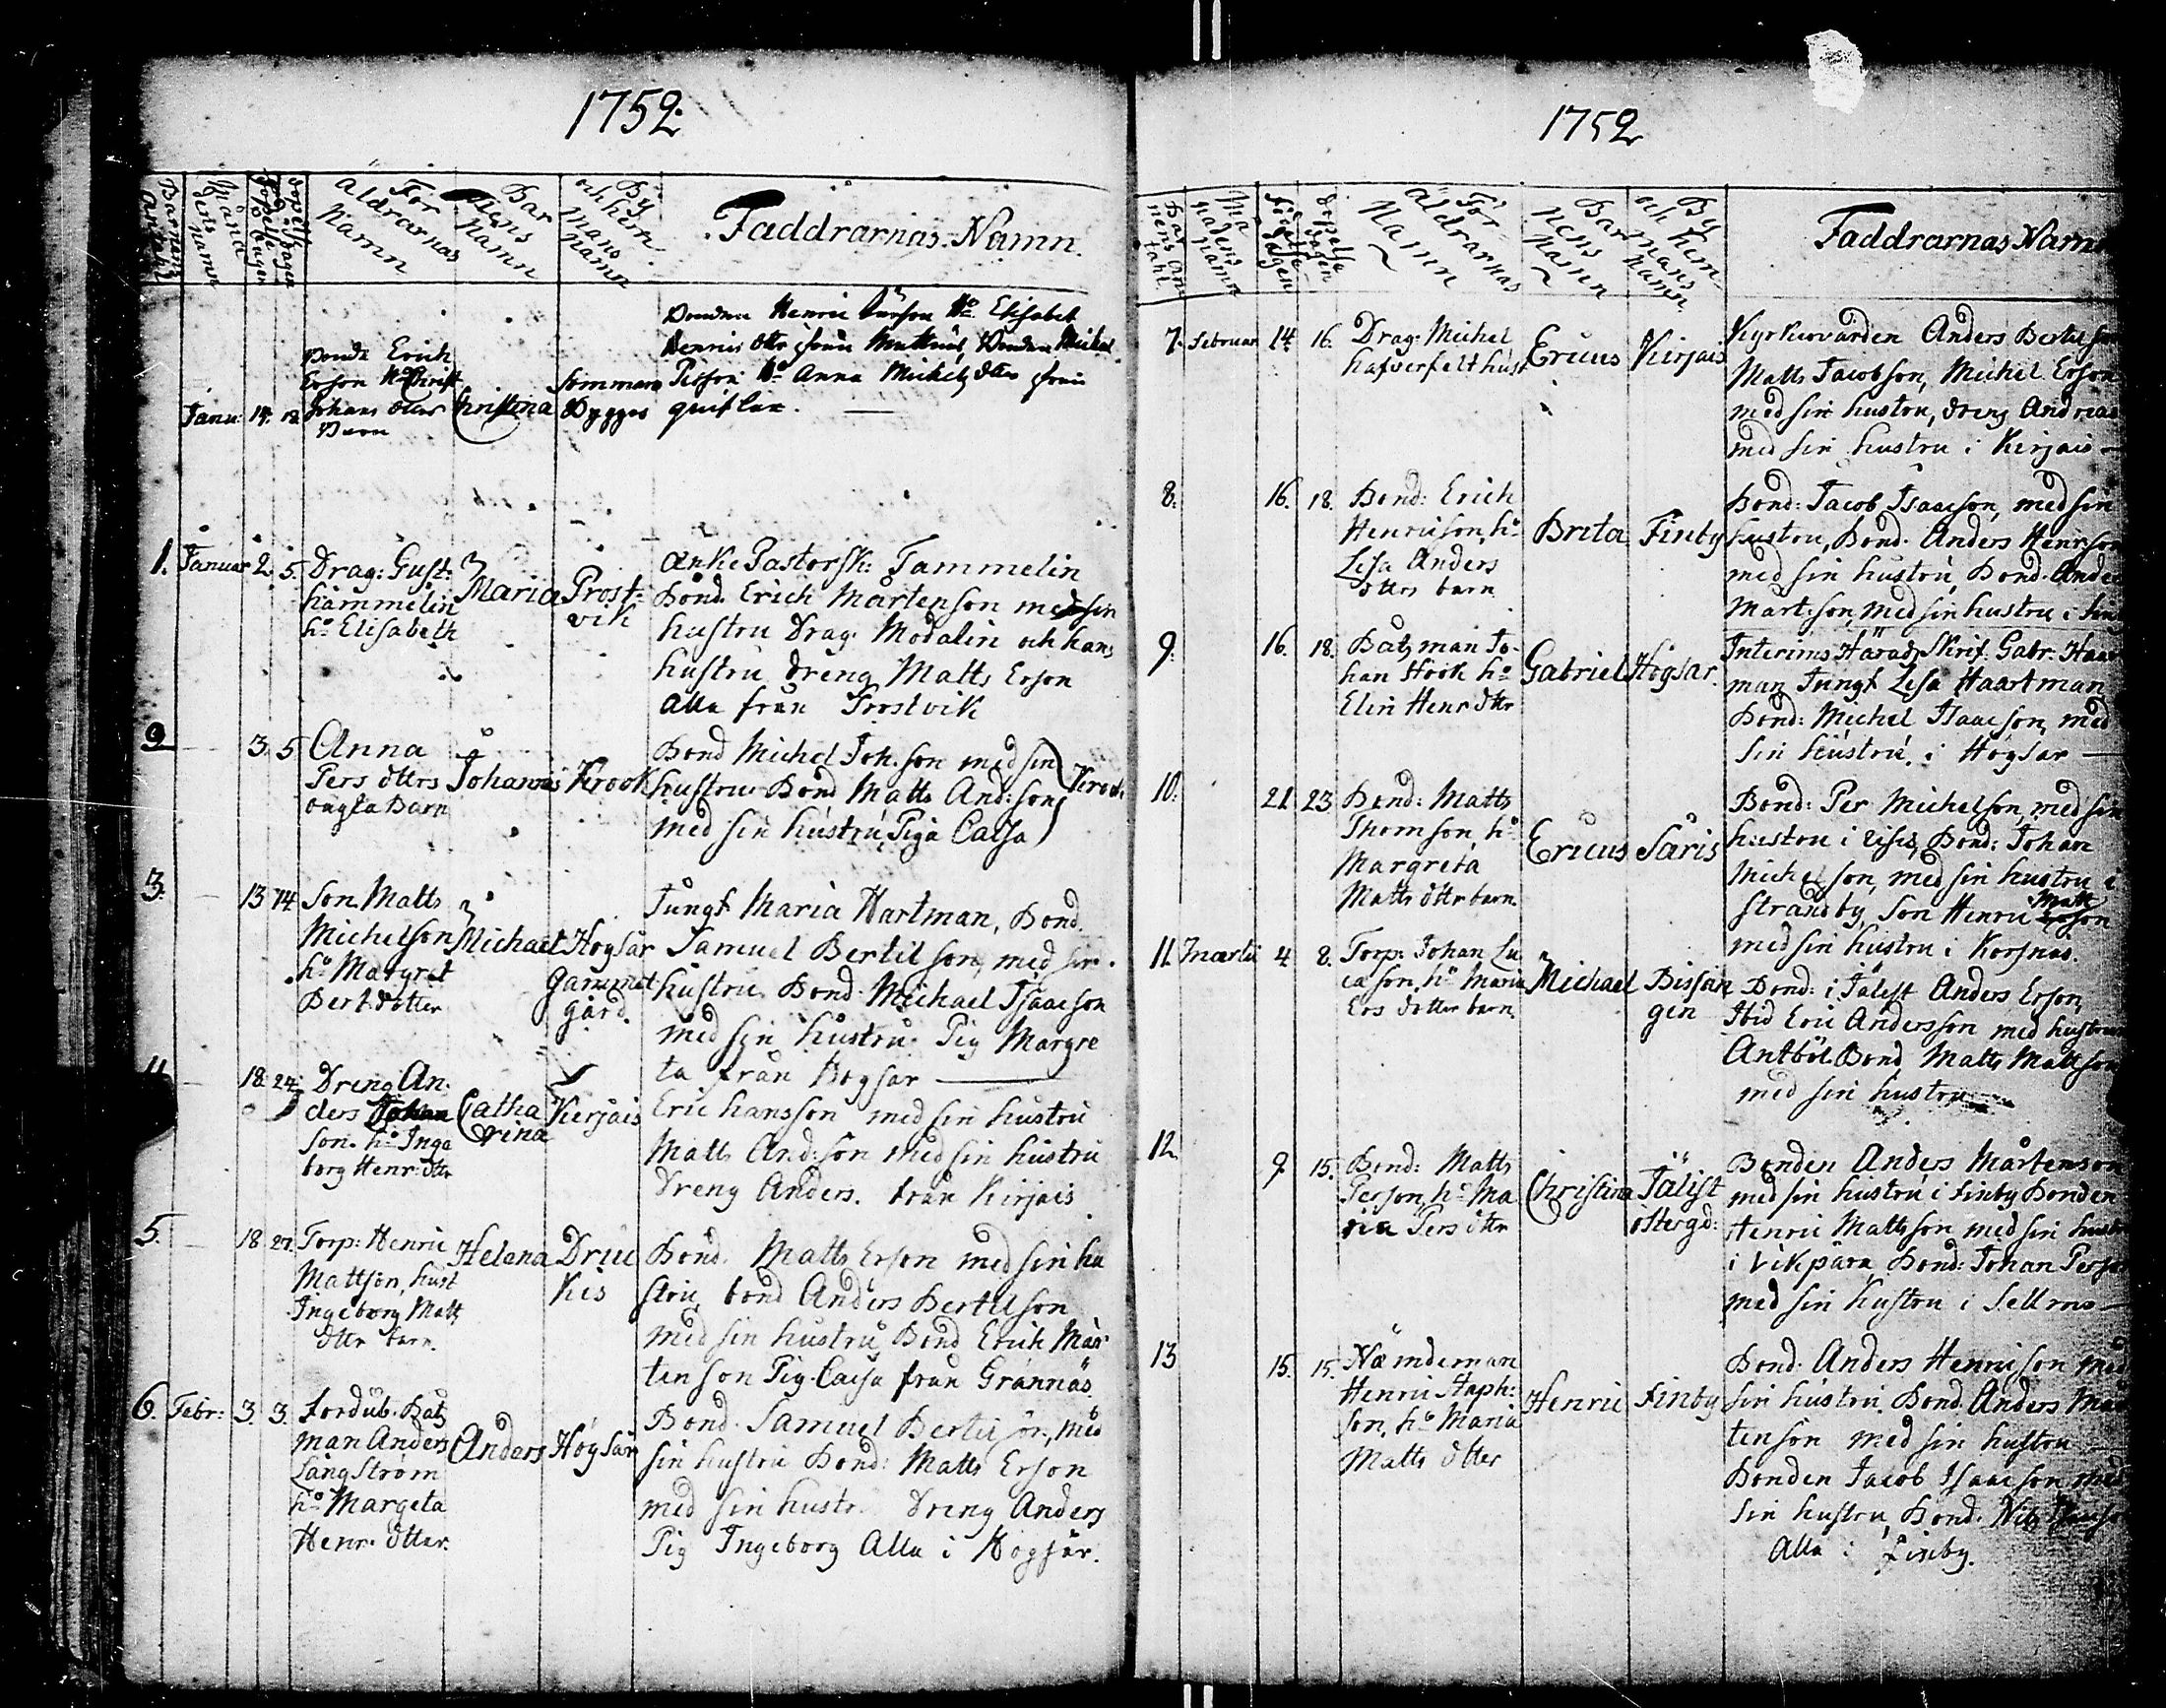 1752.
Barnens Antahl
Månadens Namn
Födelse dagen
Döpelse dagen
För
äldrarnas
Namn
Bar
nens
Namn
By
och hem
mans
Namn
Faddrarnas Namn.
Bonden Henric Ho Elisabet
Henrics dttr ifrån Bonden Michel
Person Ho Anna Michels dtter ifrån

Janu: 14. 18.
Bonde Erich
Erson Ho Christ
Johans dtter
Barn
Christina
Sommaro
Bygges
1. Januar 2. 5.
Drag: Gust:
hammelin
ho Elisabeth
Maria
Prost-
vik
Enke Pastorsk: Tammelin
Bond. Erich Mårtenson med sin
hustru Drag. Modalin och hans
hustru dreng Matts Erson
Alla från Prostvik
2 3. 5
Anna
Pers dtters
oägta Barn
Johannes
Krook
Bond Michel Joh.son med sin
hustru Bond Matts And:son
med sin hustru, Piga Caisa
Krook
3. 13 14
Son. Matts
Michelson
ho Margret
Bert.dotter
Michael
Högsar
gammel
gård.
Jungf Maria Hartman, Bond.
Samuel Bertilson, med sin
hustru Bond. Michael Isaacson
med sin hustru. Pig Margre
ta från Högsar
4 18. 24.
Dreng An-
ders Johan
son. ho Inge
borg Henr: dttr
Catha
rina
Kirjais
Eric hansson med sin hustru
Matts And:son med sin hustru
Dreng Anders. från Kirjais
5. 18. 27.
Torp: Henric
Mattson, hust
Ingeborg Matts
dttr barn.
Helena
Druc
kis
Bond. Matts Erson med sin hu
stru, bond Anders Bertilson
med sin hustru, Bond Erich Mår
tenson Pig. Caisa från Grannäs
6. Febr: 3. 3.
Fördub. Båts
man Anders
Långström
ho Margeta
Henr. dtter.
Anders
Högsar
Bond. Samuel Bertilson, med
sin hustru Bond: Matts Erson
med sin hustr. Dreng Anders
Pig Ingeborg Alla i Högsar.
1752
Barnens Antahl
Månadens Namn
Födelse dagen
Döpelse dagen
För-
äldrarnas
Namn
Bar
nens
Namn
By
och hem-
mans
Namn
Faddrarnas Namn
7. Februar 14. 16.
Drag: Michel
hafverfelt hust
Ericus
Kirjais
Kyrkovärden Anders Bertilson
Matts Jacobson, Michel Erson
med sin hustru, dreng Andreas
med sin hustru i Kirjais
8. 16. 18.
Bond: Erich
Henricson, ho
Lisa Anders
dtters barn
Brita
Finby
Bond: Jacob Isaacson, med sin
hustru, Bond. Anders Henrson
med sin hustru, Bond. Ande
Mart:son, med sin hustru i Fin
9. 16. 18.
Båtsman Jo-
han Hök ho
Elin Henr dttr
Gabriel
Högsar.
Interims Härads Skrif. Gabr. Haar
man Jungf Lisa Haartman
Bond: Michel Isaacson, med
sin hustru. i Högsar
10. 21. 23
Bond: Matts
Thomson, ho
Margreta
Matts dttr barn.
Ericus
Säris
Bond: Per Michelson, med sin
hustru i Risis, Bond: Johan
Michelson, med sin hustru i
Strandby, Son Henric Matt
son
med sin hustru i Korsnäs.
11. Martii 4 8.
Torp: Johan Lu
cason, ho Maria
Ers dotter barn.
Michael
Bissan
gen
Bond: i Jälist Anders Erson,
Ibid Eric Andersson med hustru
Antböl. Bond Matts Mattson
med sin hustru
12 9. 15.
Bond: Matts
Person, ho Ma
ria Pers dttr
Christina
Jälist
östergd:
Bonden Anders Mårtenson
med sin hustru i Finby Bonden
Henric Mattsson med sin hustr
i Vikpära Bond: Johan Person
med sin hustru i Sellmo
13 15. 15.
Nämndeman
Henric Staph:
son, ho Maria
Matts dtter
Henric
Finby
Bond. Anders Henricson med
sin hustru. Bond. Anders Mår
tenson med sin hustru
Bonden Jacob Isaacson med
sin hustru, Bond. Nils
Alla i Finby.